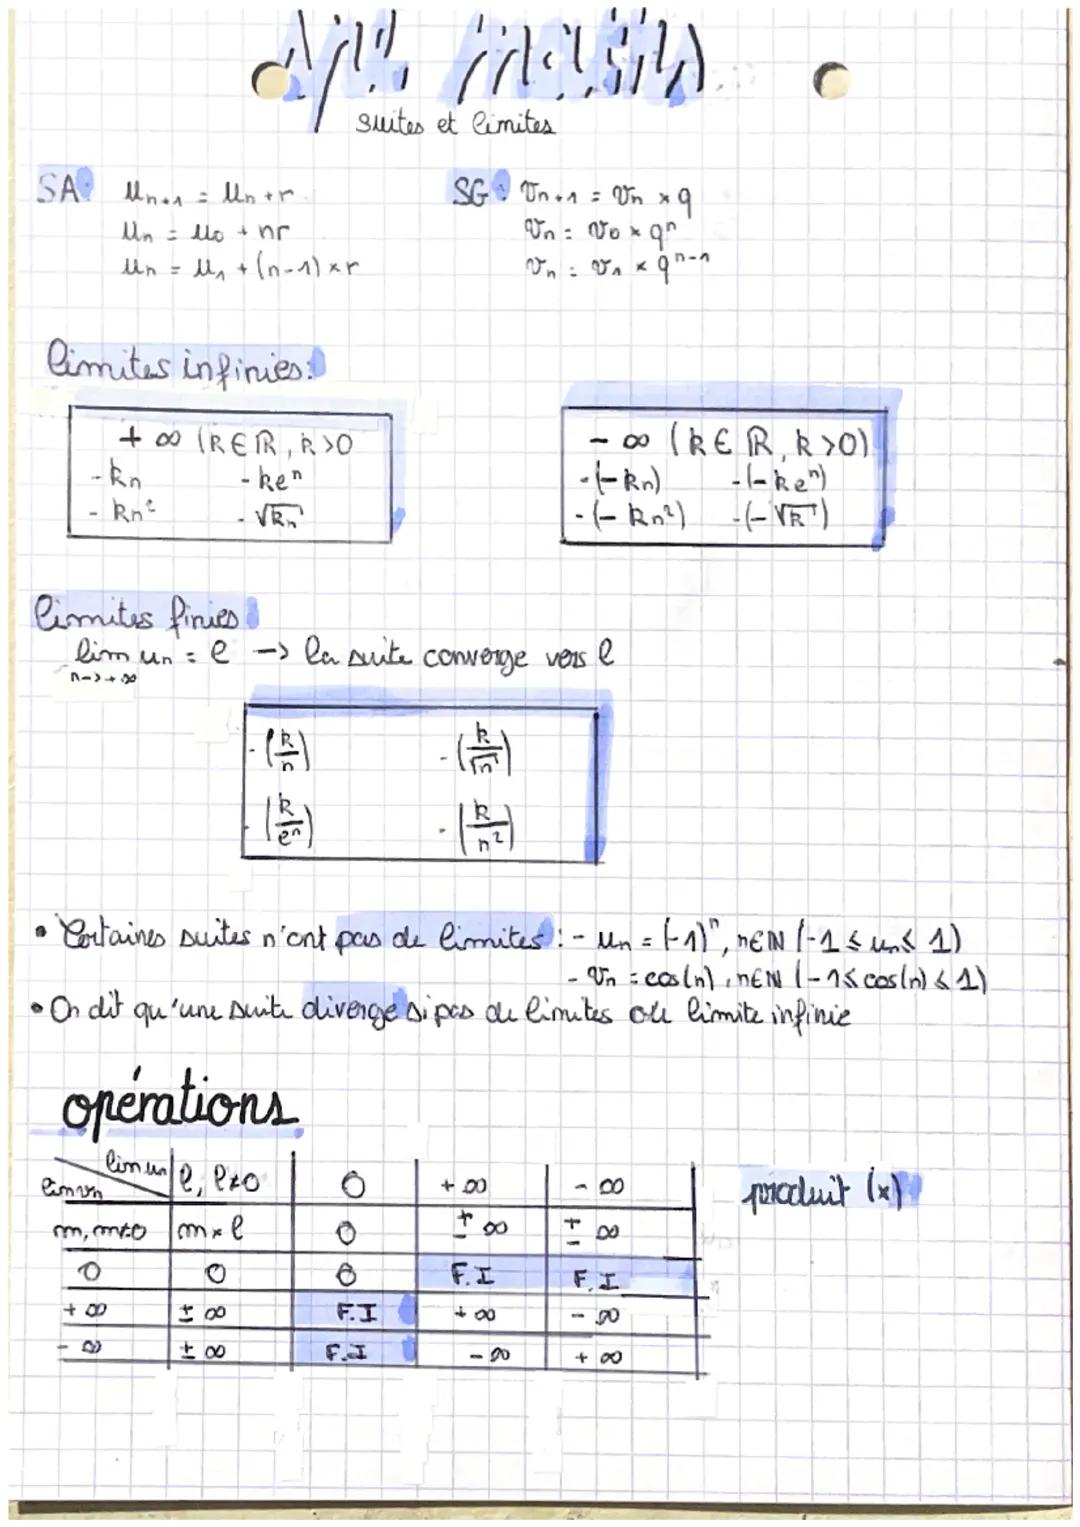 suites et limites
SA: Un+1 = Un + r
Un = U0 + nr
Un = U1 + (n-1) × r
SG: Vn+1 = Vn × q
Vn = V0 × qⁿ
Vn = V1 × qⁿ⁻¹
limites infinies:
+ ∞ (k ∈ ℝ, k > 0
- kn - keⁿ
- kn² - √kn
- ∞ (k ∈ ℝ, k > 0)
- (- kn) - (- keⁿ)
- (- kn²) - (- √k)
limites finies
lim un = l → la suite converge vers l
n→+∞
- (k/n) - (k/√n)
- (k/eⁿ) - (k/n²)
• Certaines suites n'ont pas de limites : - un = (-1)ⁿ, n∈ℕ (-1 ≤ un ≤ 1)
- Vn = cos(n), n∈ℕ (-1 ≤ cos(n) ≤ 1)
• On dit qu'une suite diverge si pas de limites ou limite infinie
opérations
lim un l, l≠0 0 + ∞ - ∞
lim vn
m, m≠0 m × l 0 ± ∞ ± ∞
0 0 0 F.I F.I
+ ∞ ± ∞ F.I + ∞ - ∞
- ∞ ± ∞ F.I - ∞ + ∞
produit (×)